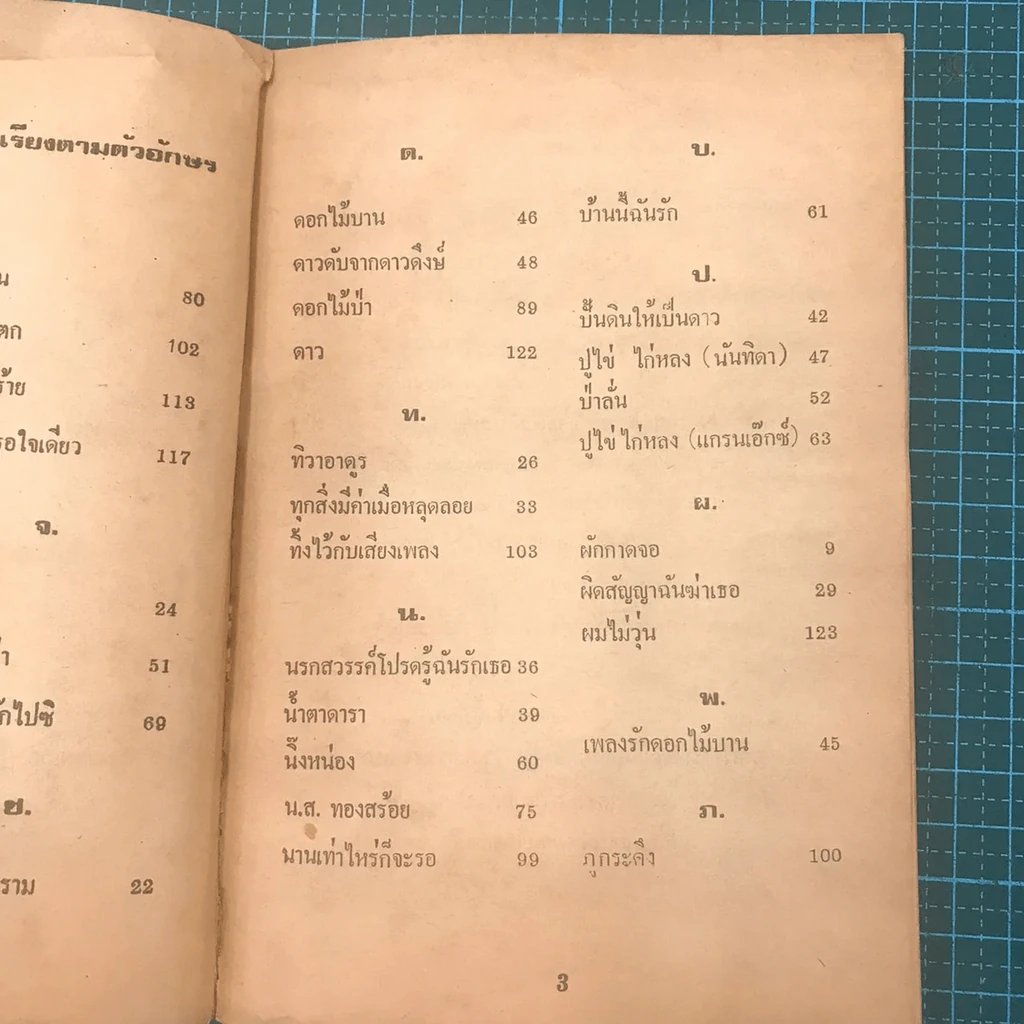 เรียงตามตัวอักษร
80
102
113
117
จ.
24
51
69
ช.
22
ด.
ดอกไม้บาน 46
ดาวดับจากดาวดึงษ์ 48
ดอกไม้ป่า 89
ดาว 122
ท.
ทิวาอาดูร 26
ทุกสิ่งมีค่าเมื่อหลุดลอย 33
ทิ้งไว้กับเสียงเพลง 103
น.
นรกสวรรค์โปรดรู้ฉันรักเธอ 36
น้ำตาดารา 39
นิ๊งหน่อง 60
น.ส. ทองสร้อย 75
นานเท่าไหร่ก็จะรอ 99
บ.
บ้านนี้ฉันรัก 61
ป.
ปั้นดินให้เป็นดาว 42
ปูไข่ ไก่หลง (นันทิดา) 47
ป่าลั่น 52
ปูไข่ ไก่หลง (แกรนเอ๊กซ์) 63
ผ.
ผักกาดจอ 9
ผิดสัญญาฉันฆ่าเธอ 29
ผมไม่วุ่น 123
พ.
เพลงรักดอกไม้บาน 45
ภ.
ภูกระดึง 100
3